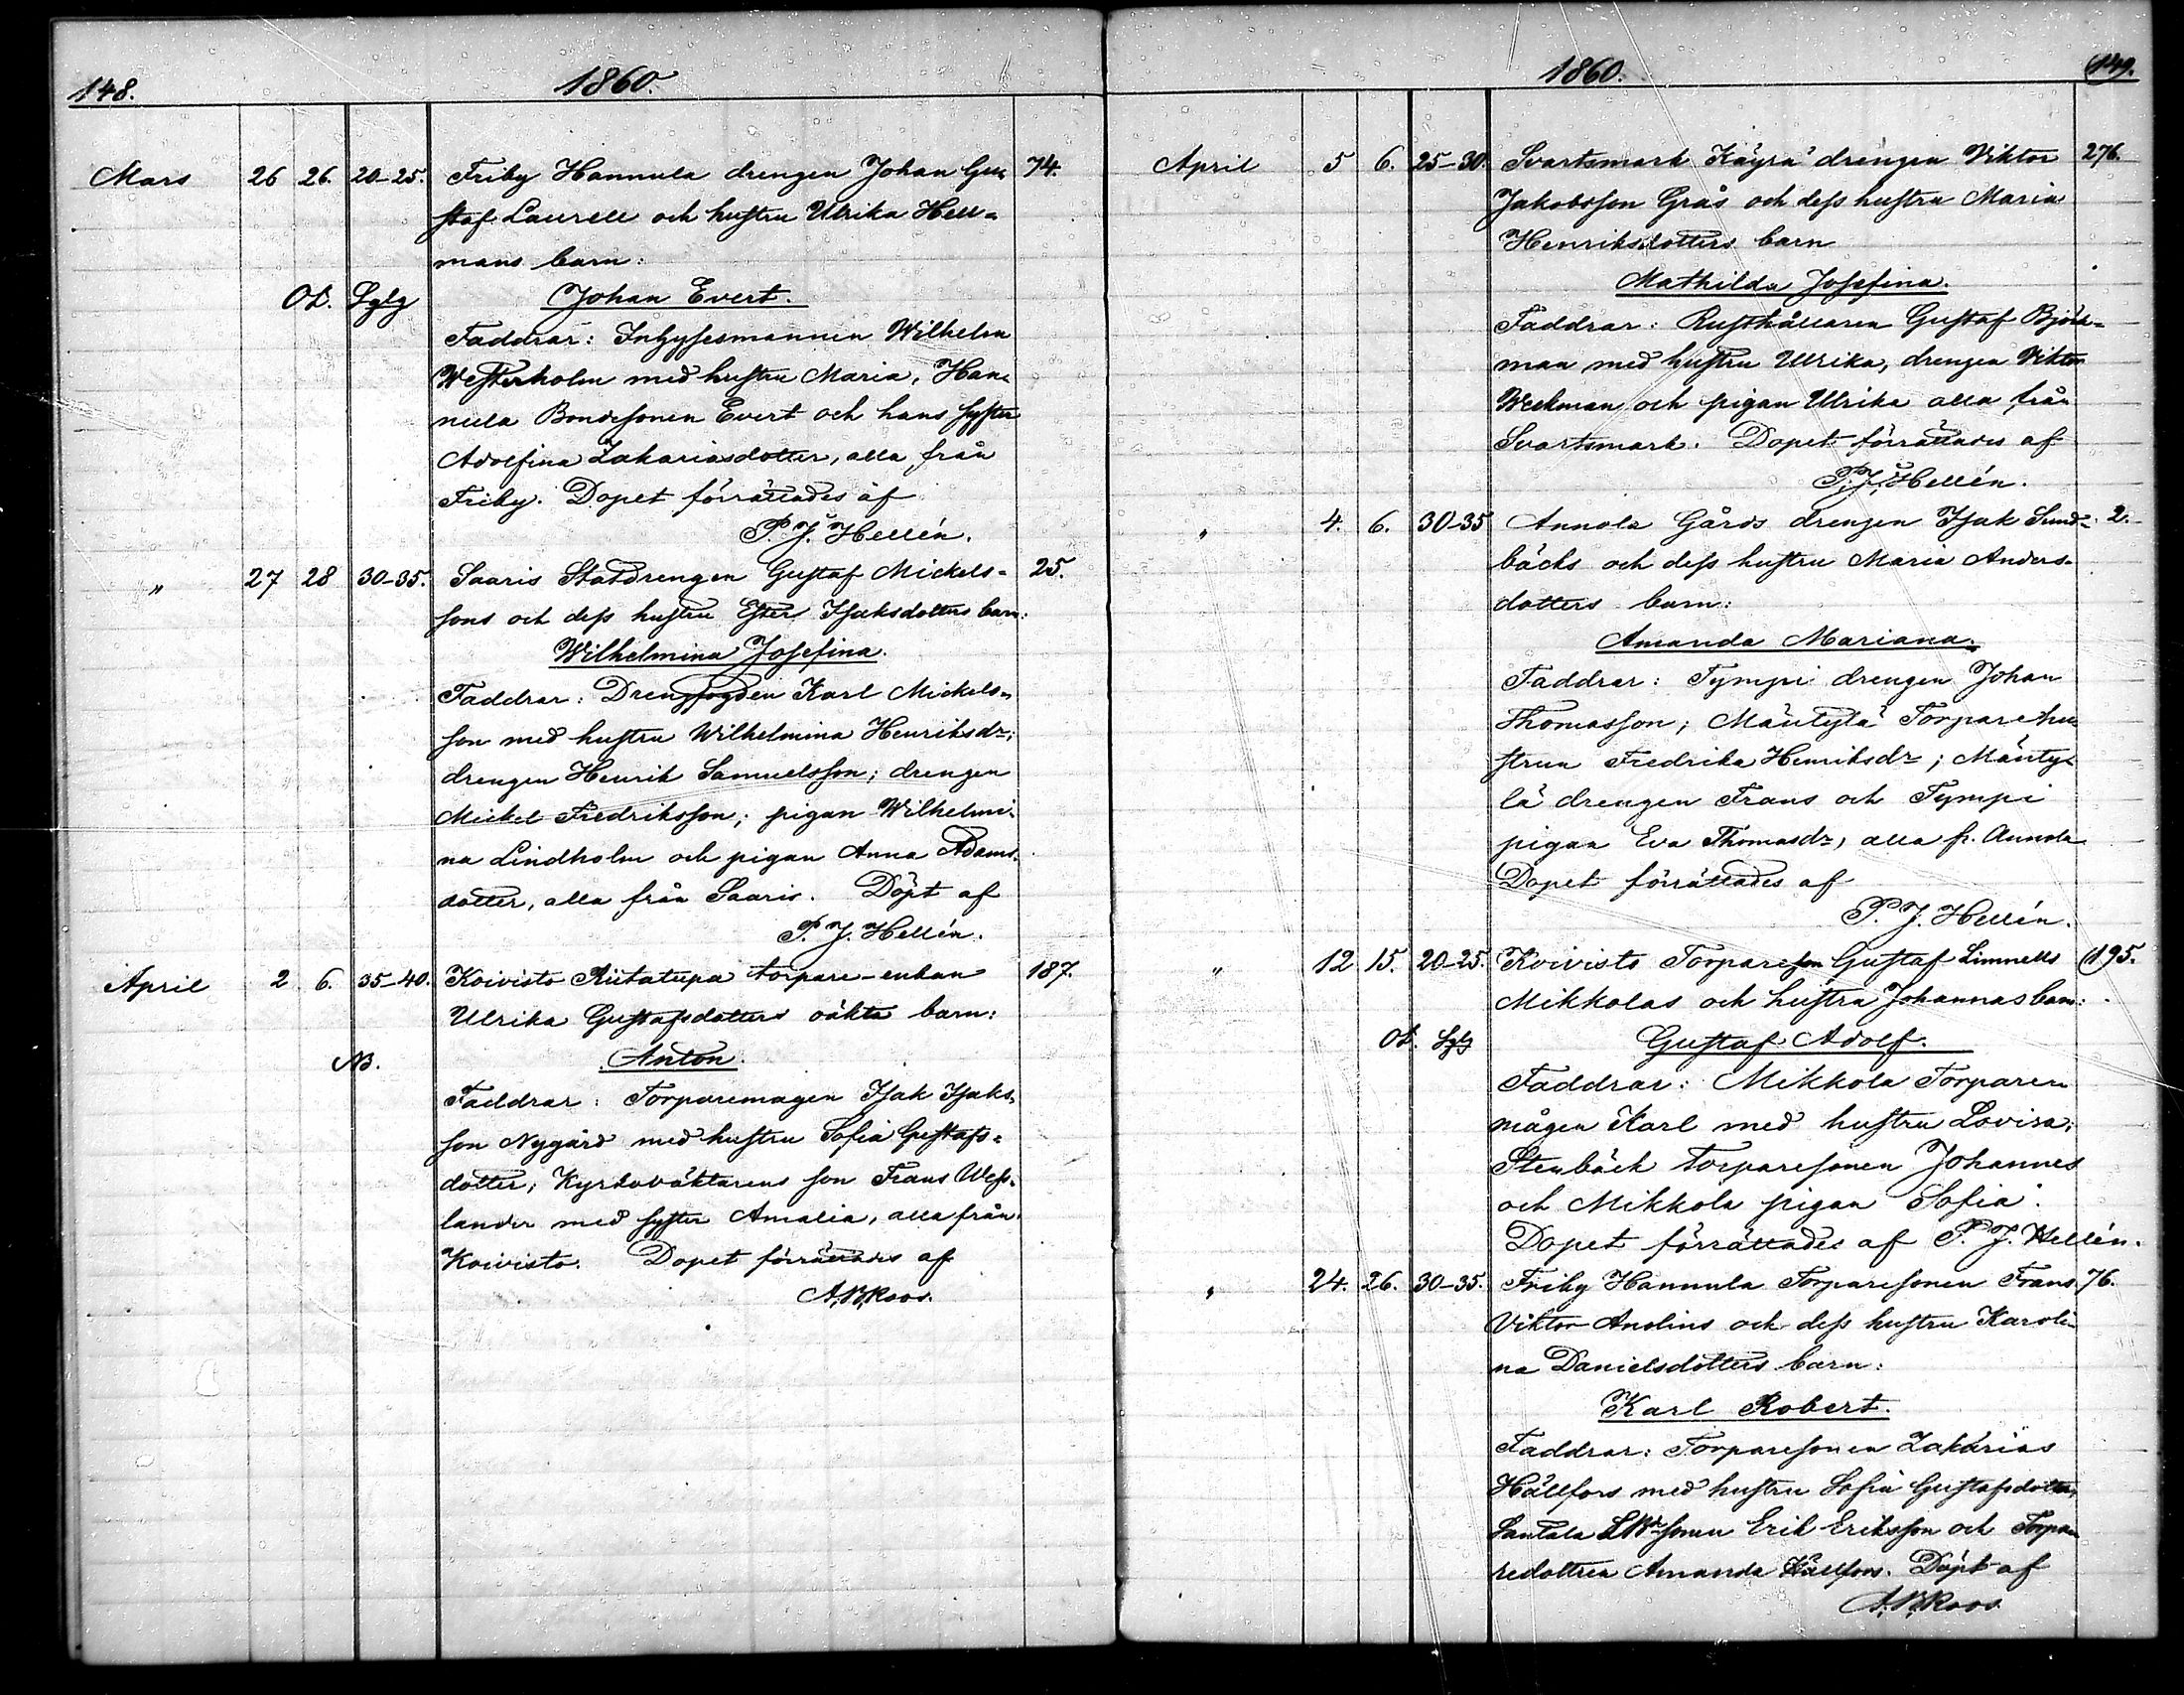 148. 1860.
Mars 26 26. 20-25. Friby Hannula drengen Johan Gu- 74.
staf Laurell och hustru Ulrika Hell-
mans barn:
Johan Evert.
Faddrar: Inhysesmannen Wilhelm
Westerholm med hustru Maria, Han-
nula Bondesonen Evert och hans syster
Adolfina Zakariasdotter, alla från
Friby. Dopet förrättades af
P. J. Hellén.
" 27 28 30-35. Saaris Statdrengen Gustaf Mickels- 25.
sons och dess hustru Ester Isaksdotters barn:
Wilhelmina Josefina.
Faddrar: Drengfogden Karl Mickels-
son med hustru Wilhelmina Henriksdr;
drengen Henrik Samuelsson; drengen
Mickel Fredriksson; pigan Wilhelmi-
na Lindholm och pigan Anna Adams-
dotter, alla från Saaris. Döpt af
P. J. Hellén.
April 2 6. 35-40. Koivisto Riitatupa torpare-enkan 187.
Ulrika Gustafsdotters oäkta barn:
NB. Anton.
Faddrar: Torparemågen Isak Isaks-
son Nygård med hustru Sofia Gustafs-
dotter; Kyrkoväktarens son Frans Wess-
lander med syster Amalia, alla från
Koivisto. Dopet förrättades af
A. B. Roos.
1860. 149.
April 5 6. 25-30. Svartsmark Käyrä drengen Viktor 276.
Jakobsson Grås och dess hustru Maria
Henriksdotters barn
Mathilda Josefina.
Faddrar: Rusthållaren Gustaf Björk-
man med hustru Ulrika, drengen Viktor
Weckman och pigan Ulrika alla från
Svartsmark. Dopet förrättades af
P. J. Hellén.
" 4. 6. 30-35 Annola Gårds drengen Isak Sund- 2.
bäcks och dess hustru Maria Anders-
dotters barn:
Amanda Mariana.
Faddrar: Tympi drengen Johan
Thomasson; Mäntylä Torparehu-
strun Fredrika Henriksdr; Mänty-
lä drengen Frans och Tympi
pigan Eva Thomasdr, alla fr. Annola
Dopet förrättades af
P. J. Hellén.
" 12 15. 20-25. Koivisto Torpareson Gustaf Limnells 195.
Mikkolas och hustru Johannas barn:
Gustaf Adolf.
Faddrar: Mikkola Torpare
mågen Karl med hustru Lovisa;
Stenbäck torparesonen Johannes
och Mikkola pigan Sofia.
Dopet förrättades af P. J. Hellén.
" 24. 26. 30-35. Friby Hannula Torparesonen Frans 76.
Viktor Anolins och dess hustru Karoli-
na Danielsdotters barn:
Karl Robert.
Faddrar: Torparesonen Zakarias
Hällfors med hustru Sofia Gustafsdotter,
Santala sonen Erik Eriksson och Torpa-
redottren Amanda Hällfors. Döpt af
A. B. Roos